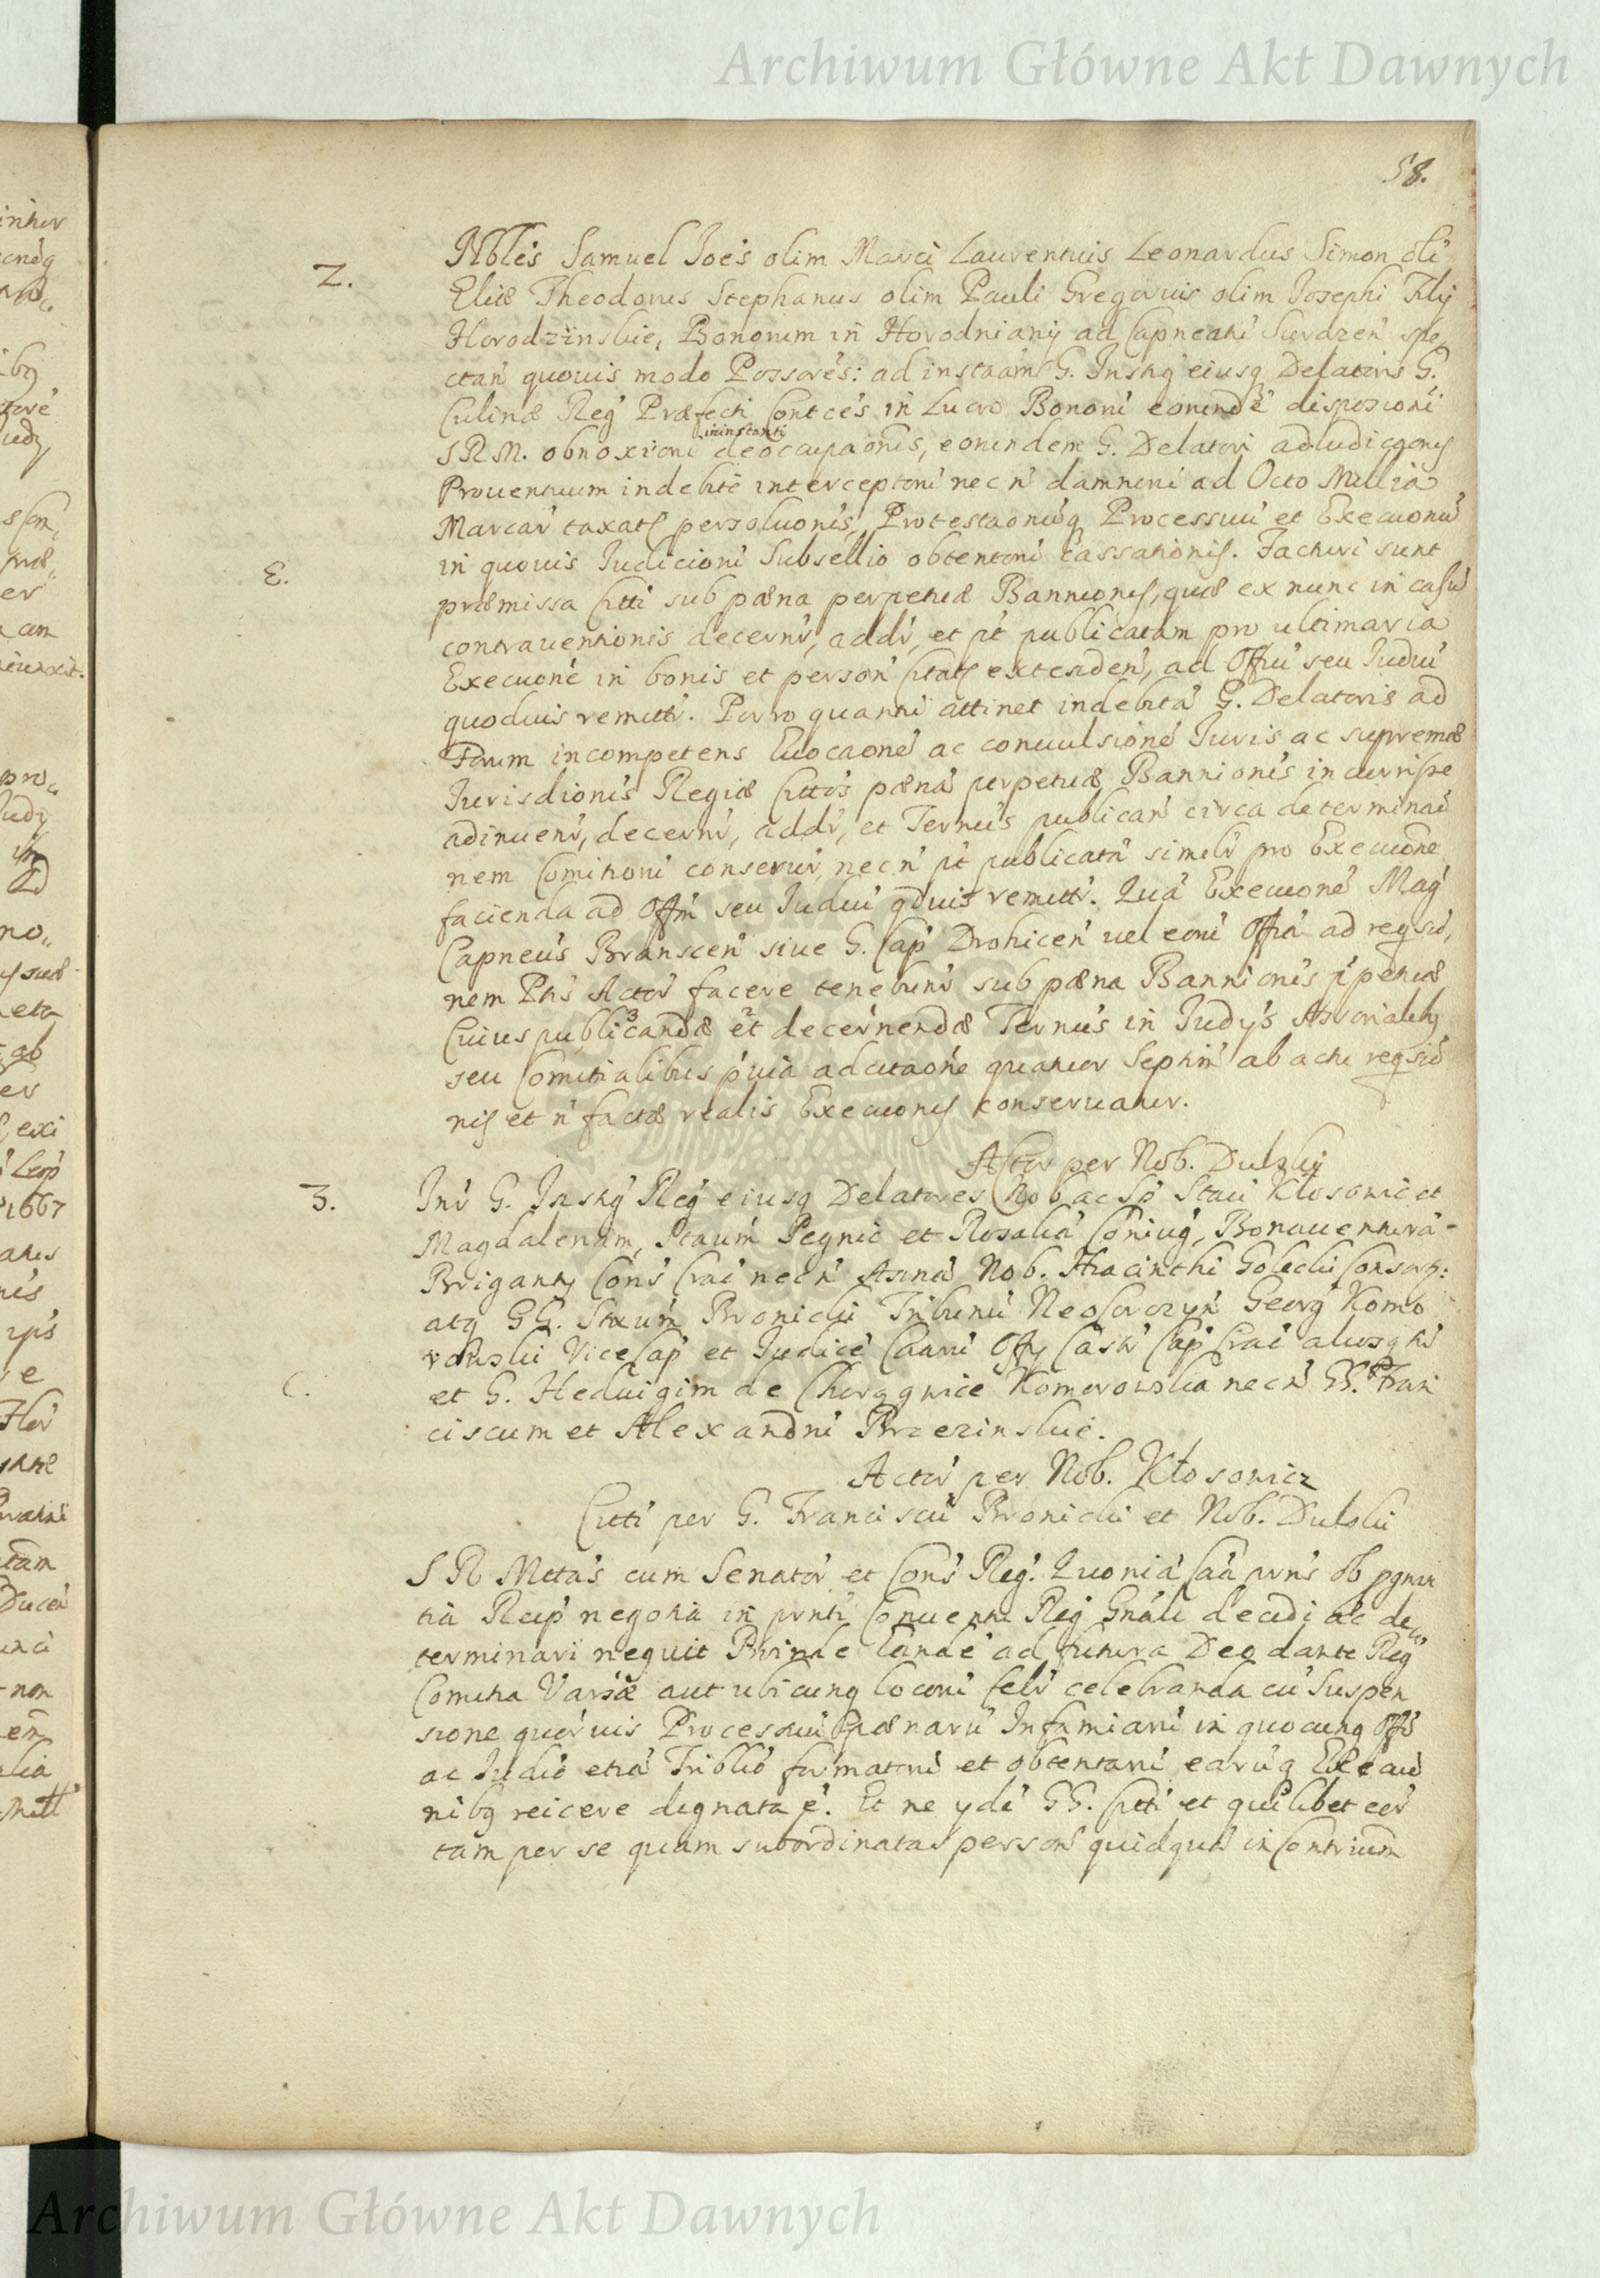 Archiwum Główne Akt Dawnych
58.
2.
Nbles Samuel Joes olim Marci Laurentius Leonardus Simon oli
Eliæ Theodorus Stephanus olim Pauli Gregorius olim Josephi Filij
Horodzinskie, Bonorum in Horodniany ad Capneatu Surazen spe,
ctan quouis modo Possores: ad instaam G. Instig eiusq Delatoris G.
Culinæ Reg Præfecti Contces in Lucro Bonorū eorundē disposioni
S R M. obnoxiorū ininstanti deoccupaonis, eorundem G. Delatori adiudicaonis
Prouentuum indebite interceptorū nec n damnorū ad Octo Millia
Marcar taxats persoluonis, Protestaonuq Processuū et Execuonū
in quouis Judiciorū Subsellio obtentorū cassationis. Facturi sunt
E.
præmissa Citti sub pæna perpetuæ Bannionis, quæ ex nunc in casu
contrauentionis decernr, addr, et pt publicatam pro ultimaria
Execuone in bonis et person Citats extenden, ad Offiu seu Judiu
quoduis remittr. Porro quantū attinet indebita G. Delatoris ad
Forum incompetens Euocaone ac conuulsione Juris ac supremæ
Jurisdionis Regiæ Cittos pæna perpetuæ Bannionis incurrisse
adinuenr, decernr, addr, et Ternus publican circa determinaō
nem Comitiorū conserur, nec n pt publicata similr pro Execuone
facienda ad Offm seu Judiu qduis remittr. Qua Execuone Mag
Capneus Branscen siue G. Cap Drohicen uel eorū Offia ad reqsio,
nem Ptis Actor facere tenebunr sub pæna Bannionis ppetuæ
Cuius publicandæ et decernendæ Ternus in Judys Assorialibq
seu Comitialibus puia adcitaone quatuor Septim ab actu reqsio
nis et n factæ realis Execuonis conseruatur.
Actor per Nob. Dulski
3.
Intr G. Instig Reg eiusq Delatores Nob ac Sp Staū Kłosowic et
Magdalenam, Staum Pegnic et Rosalia Coniug, Bonauentura-
Briganty Cons Crac nec n Anna Nob. Hiacinthi Golecki Consorz:
atq GG. Staum Bronicki Tribunū Neoforozyn Georg Komo
rowski ViceCap et Judice Caarū Offy Castr Cap Crac aliosq ns
C.
et G. Heduigim de Chrzqnice Komorowska nec n GG. Fran
ciscum et Alexandrū Brzezinskie.
Actor per Nob. Kłosowicz
Citti per G. Franciscū Bronicki et Nob. Dulski
S R Mttas cum Senator et Cons Reg. Quonia Caa prns ob pgran
tia Reip negotia in prnti Conuentu Reg Gnali decidi ac de,
terminari nequit Proinde eande ad futura Deo dante Reg
Comitia Varsæ aut ubicunq locorū felr celebranda cu Suspen
sione quoruis Processuū Pænaru Infamiarū in quocunq Offo
ac Judio etia Triblio formatorū et obtentarū earuq Execuō
nibq reicere dignata e. Et ne ydē GG. Citti et quilibet eor
tam per se quam subordinatas person quidqua in Contrium
Archiwum Główne Akt Dawnych